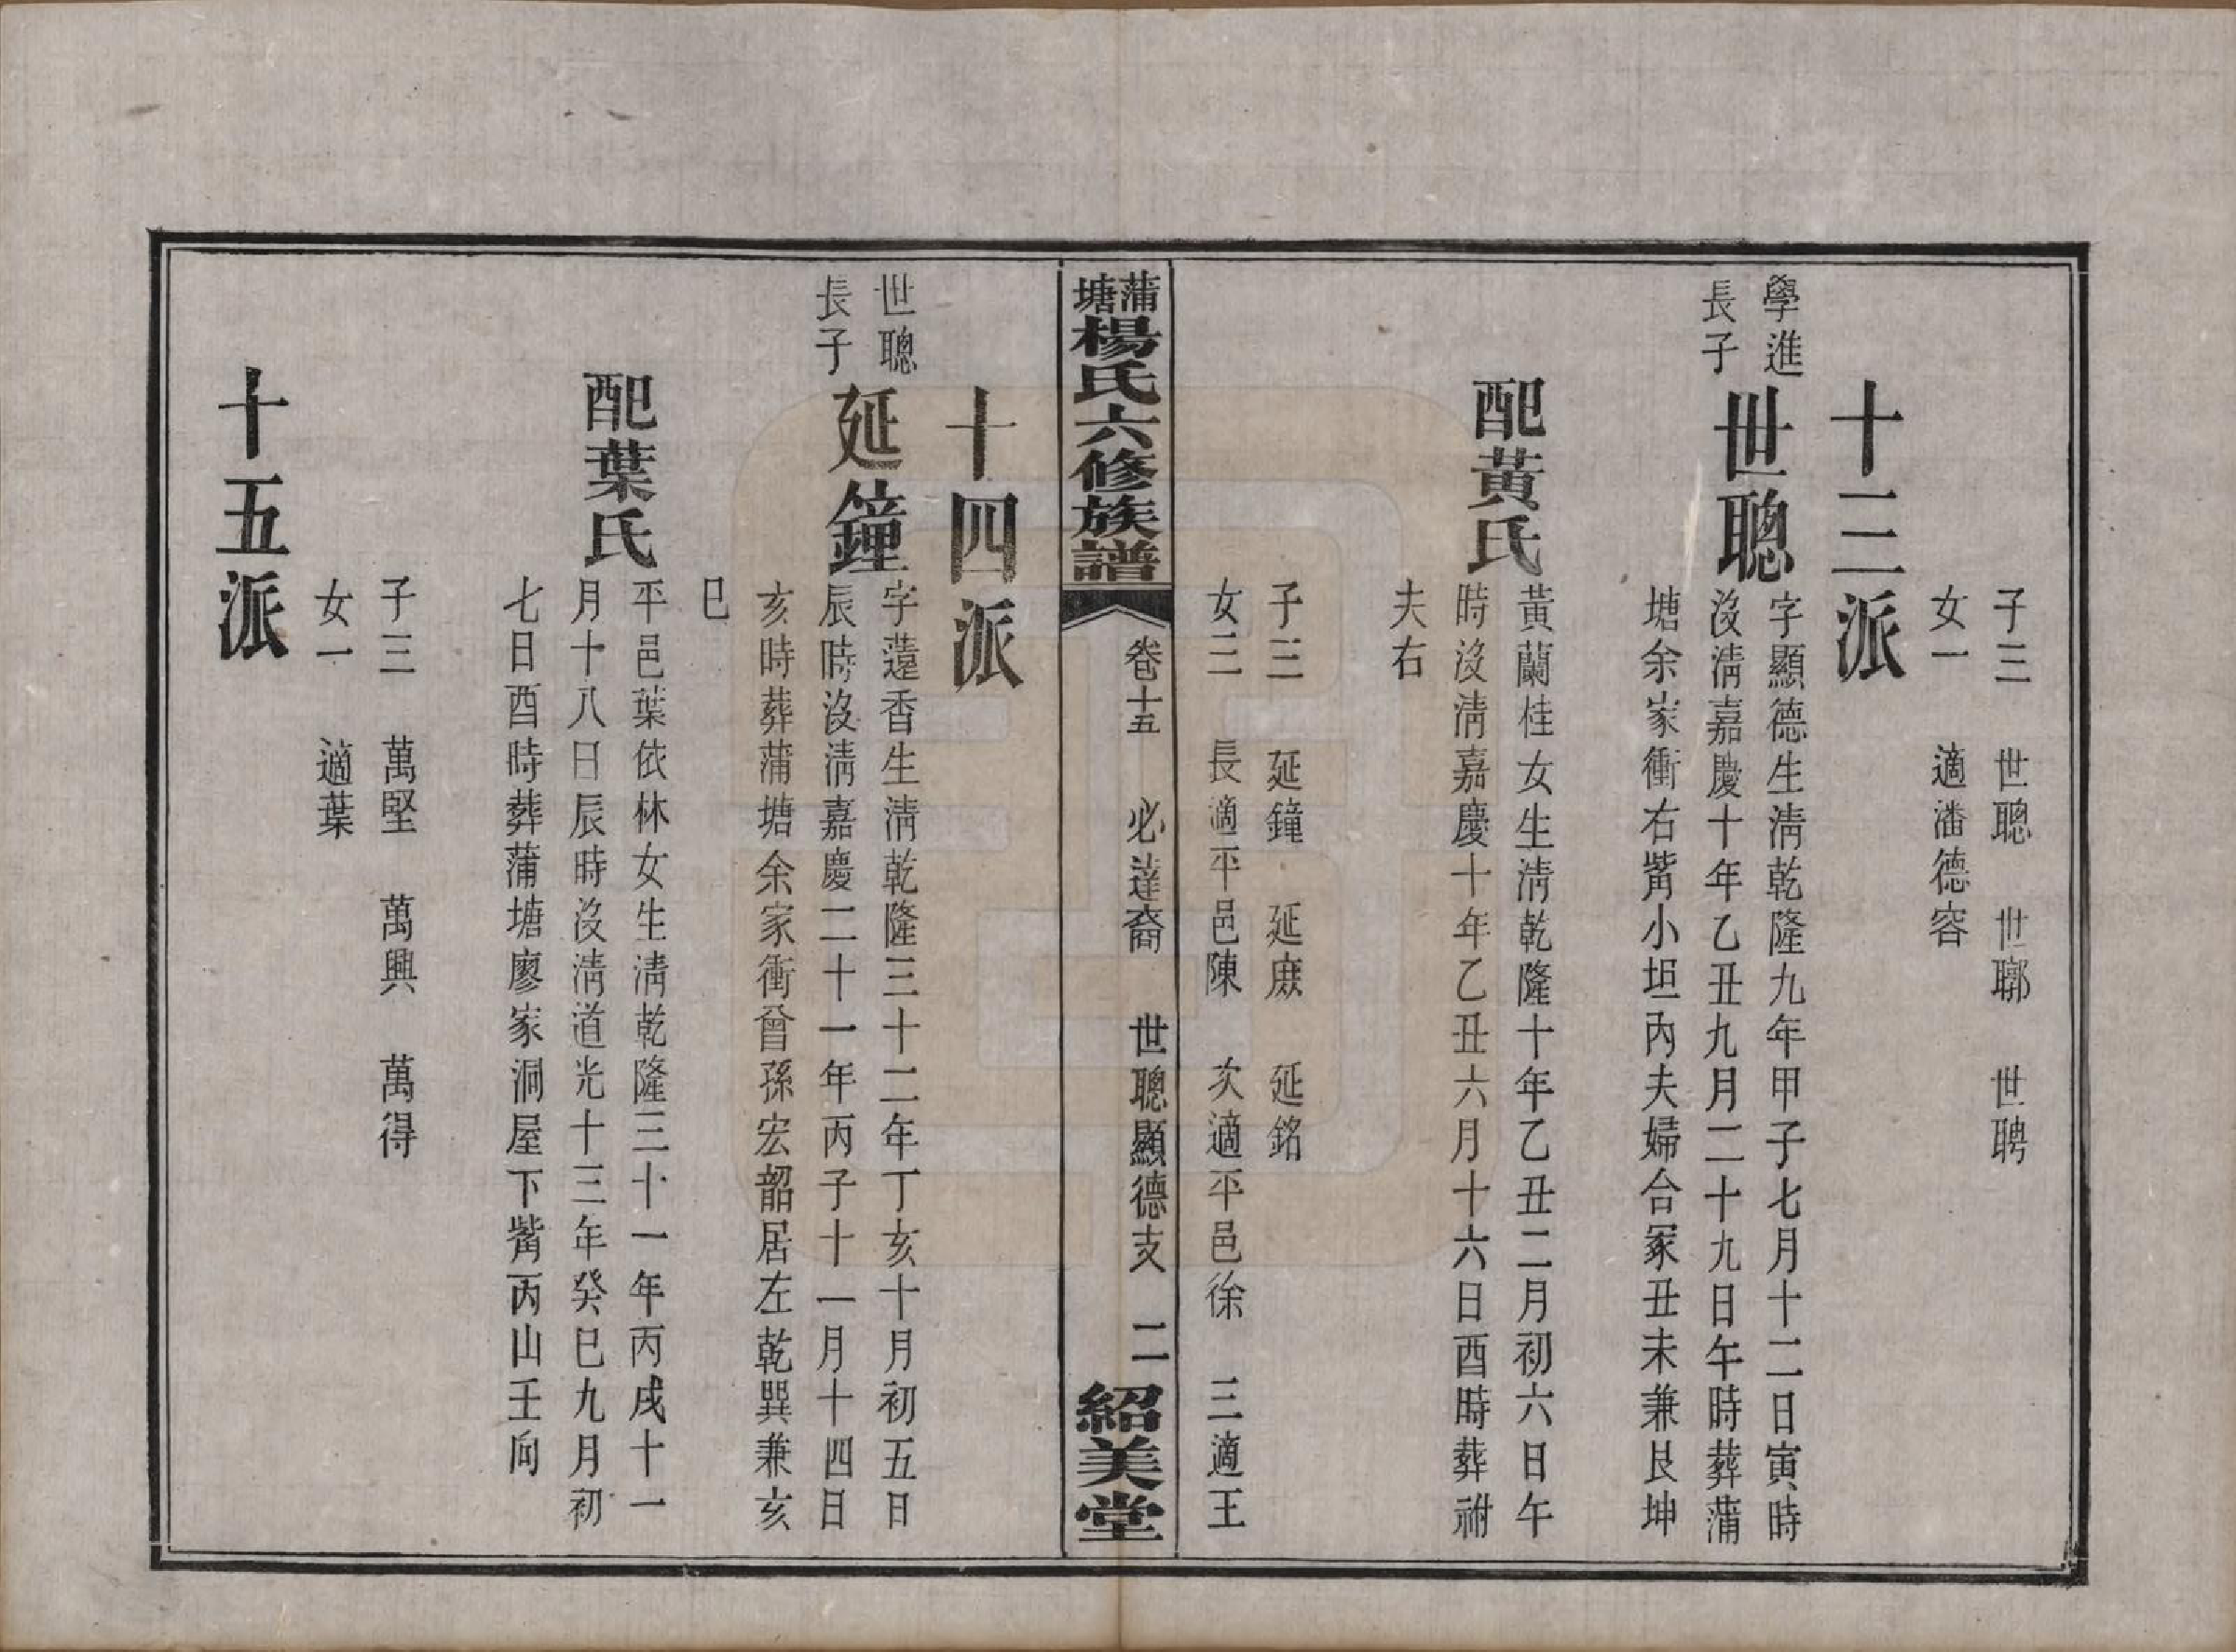 子三　世聰　世聊　世聘
女一　適潘德容
十三派
學進
長子
世聰
字顯德生淸乾隆九年甲子七月十二日寅時
沒淸嘉慶十年乙丑九月二十九日午時葬蒲
塘余家衝右觜小坦內夫婦合冢丑未兼艮坤
配黃氏
黃蘭桂女生淸乾隆十年乙丑二月初六日午
時沒淸嘉慶十年乙丑六月十六日酉時葬祔
夫右
子三　延鐘　延庶　延銘
女三　長適平邑陳　次適平邑徐　三適王
蒲塘楊氏六修族譜　卷十五　必達裔　世聰顯德支　二　紹美堂
十四派
世聰
長子
延鐘
字薳香生淸乾隆三十二年丁亥十月初五日
辰時沒淸嘉慶二十一年丙子十一月十四日
亥時葬蒲塘余家衝曾孫宏韶居左乾巽兼亥
巳
配葉氏
平邑葉依林女生淸乾隆三十一年丙戌十一
月十八日辰時沒淸道光十三年癸巳九月初
七日酉時葬蒲塘廖家洞屋下觜丙山壬向
子三　萬堅　萬興　萬得
女一　適葉
十五派